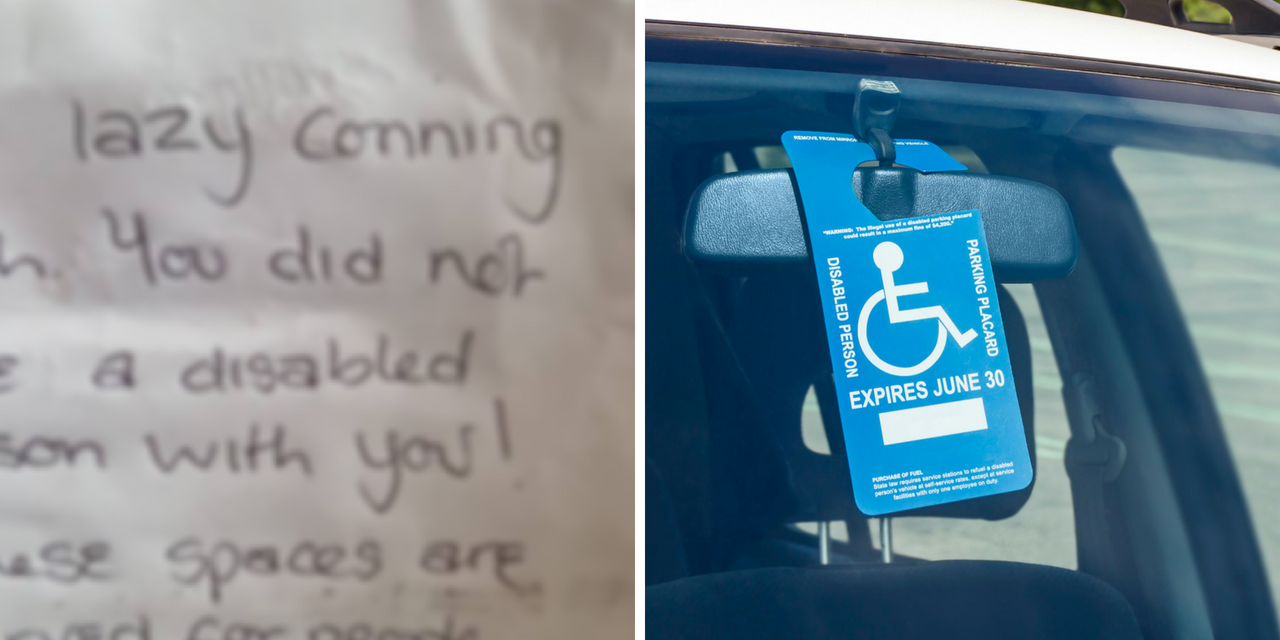 lazy Conning
h. You did not
e a disabled
son with you!
ese spaces are
for people
REMOVE FROM MIRROR
VEHICLE
"WARNING: The illegal use of a disabled parking placard
could result in a maximum fine of $4,200."
DISABLED PERSON
PARKING PLACARD
EXPIRES JUNE 30
PURCHASE OF FUEL
State law requires service stations to refuel a disabled
person's vehicle at self-service rates, except at service
facilities with only one employee on duty.